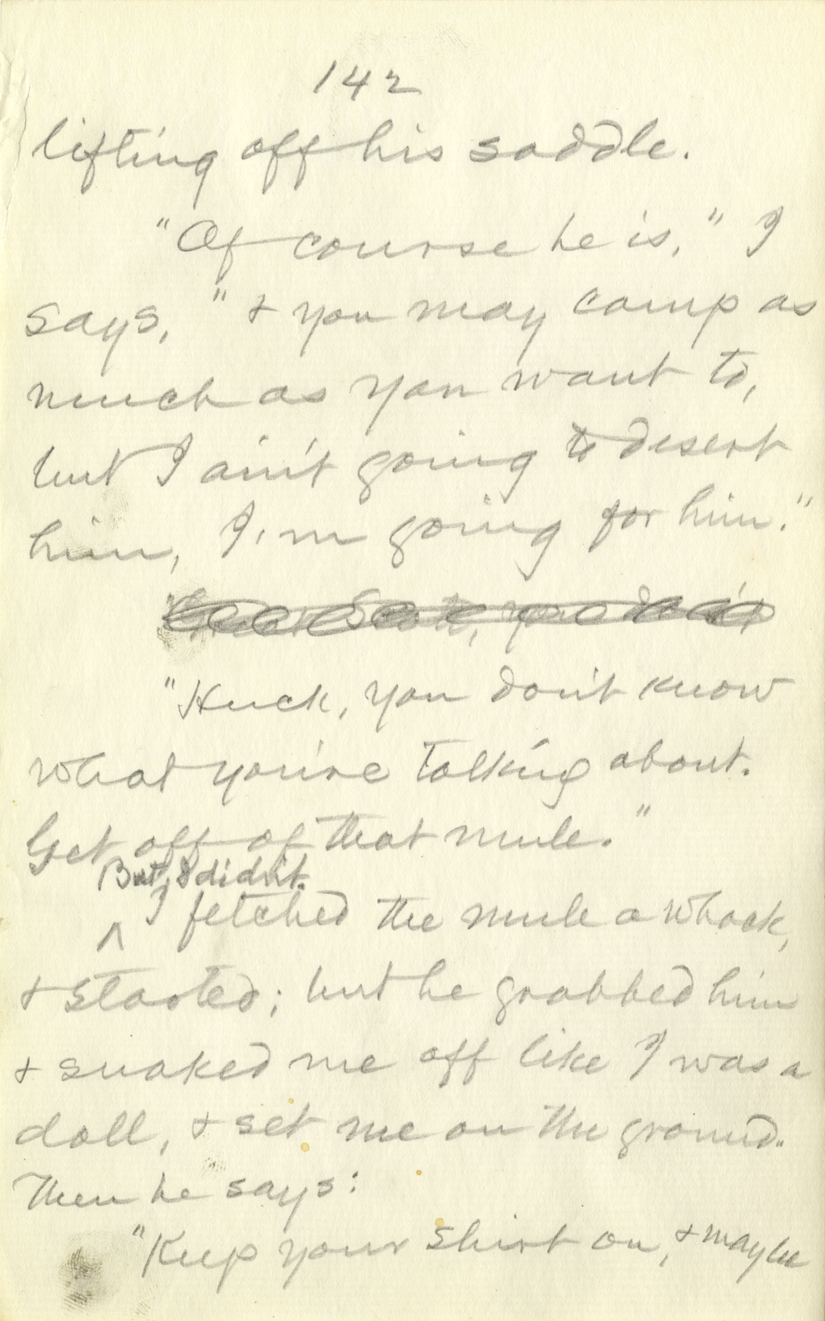 142
lifting off his saddle.
"Of course he is," I
says, "& you may camp as
much as you want to,
but I ain't going to desert
him, I'm going for him."
"Huck, you don't know
what you're talking about.
Get off of that mule."
But I didn't.
^ I fetched the mule a whack,
& started; but he grabbed him
& snaked me off like I was a
doll, & set me on the ground.
Then he says:
"Keep your shirt on, & maybe